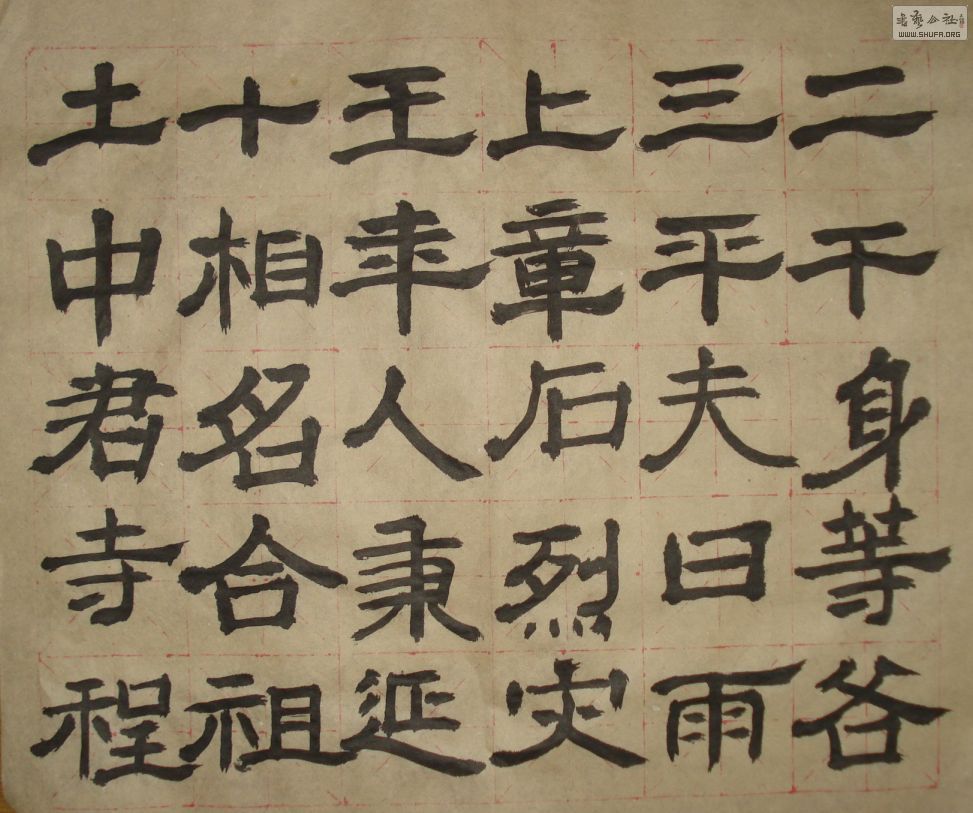 二干身等各
三平夫曰雨
上章石烈灾
王年人秉延
十相名合祖
土中君寺程
书艺公社
WWW.SHUFA.ORG